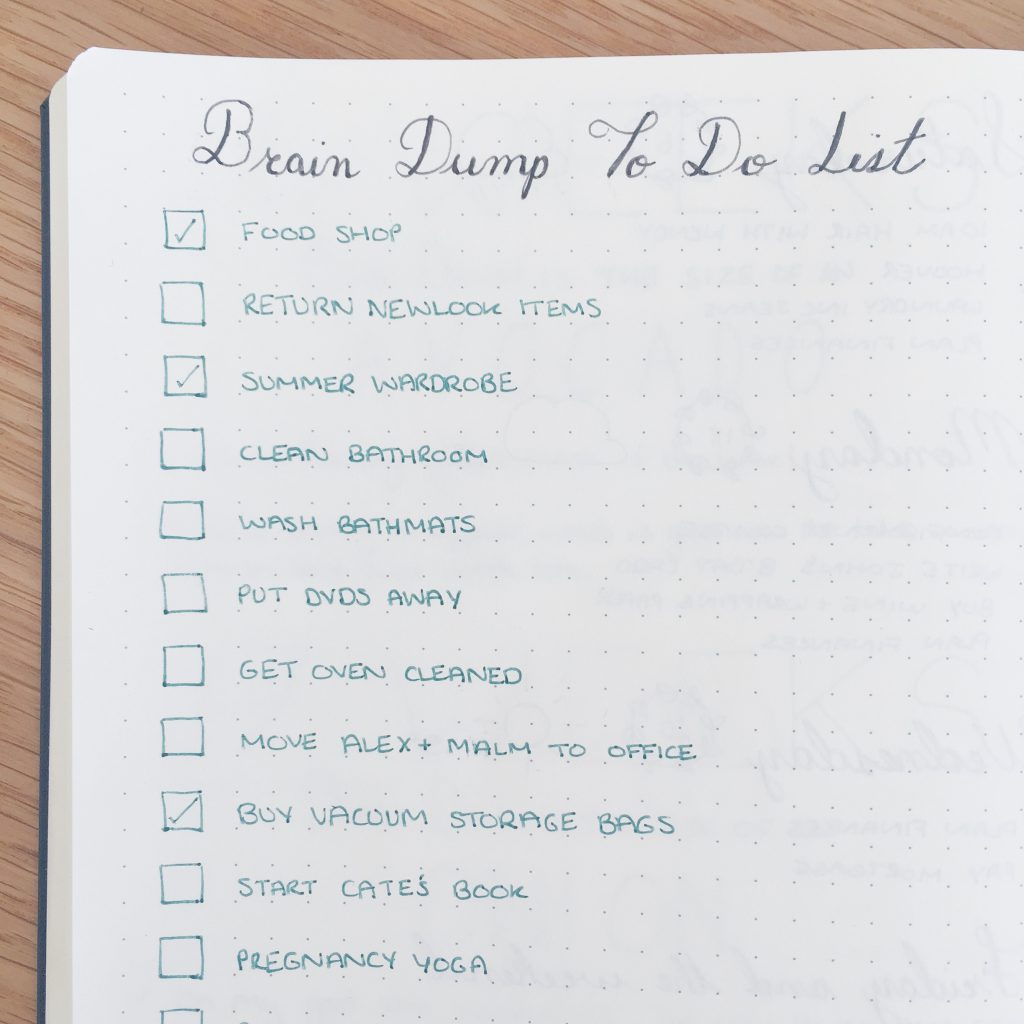 Brain Dump To Do List
FOOD SHOP
RETURN NEWLOOK ITEMS
SUMMER WARDROBE
CLEAN BATHROOM
WASH BATHMATS
PUT DVDS AWAY
GET OVEN CLEANED
MOVE ALEX + MALM TO OFFICE
BUY VACUUM STORAGE BAGS
START CATE'S BOOK
PREGNANCY YOGA